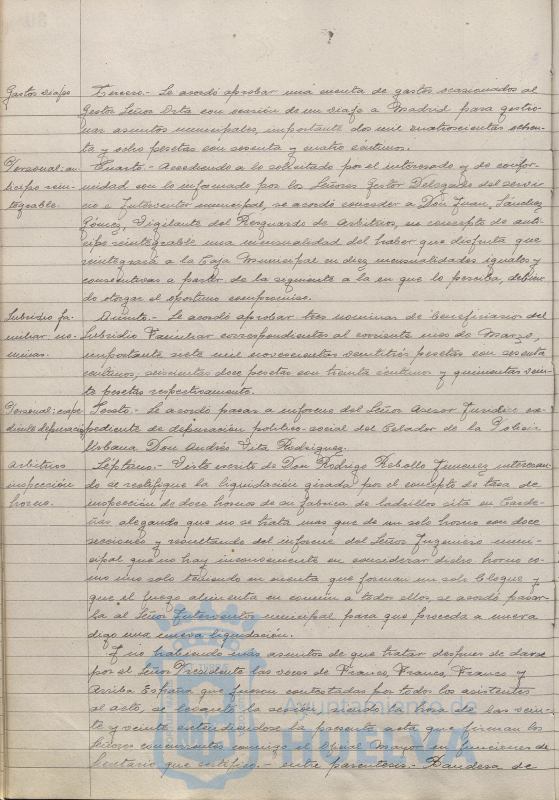 Gastos viaje Tercero.- Se acordó aprobar una cuenta de gastos ocasionados al
Gestor Señor Orta con ocasión de un viaje a Madrid para gestio-
nar asuntos municipales, importante dos mil cuatrocientas ochen-
ta y ocho pesetas con sesenta y cuatro céntimos.
Personal: an- Cuarto.- Accediendo a lo solicitado por el interesado y de confor-
ticipo rein- midad con lo informado por los Señores Gestor Delegado del servi-
tegrable. cio e Interventor municipal, se acordó conceder a Don Juan Sánchez
Gómez, Vigilante del Resguardo de Arbitrios, en concepto de anti-
cipo reintegrable una mensualidad del haber que disfruta que
reintegrará a la Caja Municipal en diez mensualidades iguales y
consecutivas a partir de la siguiente a la en que lo perciba, debien-
do otorgar el oportuno compromiso.
Subsidio fa- Quinto.- Se acordó aprobar tres nominas de beneficiarios del
miliar no- Subsidio Familiar correspondientes al corriente mes de Marzo,
minas. importante siete mil novecientas veintitrés pesetas con sesenta
céntimos, seiscientas doce pesetas con treinta céntimos y quinientas vein-
te pesetas respectivamente.
Personal: expe- Sexto.- Se acordó pasar a informe del Señor Asesor Juridico ex-
diente depuración pediente de depuración politico-social del Celador de la Policia
Urbana Don Andrés Vita Rodriguez.
Arbitrios Séptimo.- Visto escrito de Don Rodrigo Rebollo Jimenez interesan-
inspección do se rectifique la liquidación girada por el concepto de tasa de
hornos. inspección de doce hornos de su fabrica de ladrillos sita en Carde-
ñas alegando que no se trata mas que de un solo horno con doce
secciones y resultando del informe del Señor Ingeniero muni-
cipal que no hay inconveniente en considerar dicho horno co-
mo uno solo teniendo en cuenta que forman un solo bloque y
que el fuego alimenta en común a todos ellos, se acordó pasar-
la al Señor Interventor municipal para que proceda a nueva
digo una nueva liquidación.
Y no habiendo más asuntos de que tratar despues de darse
por el Señor Presidente las voces de Franco, Franco, Franco y
Arriba España que fueron contestadas por todos los asistentes
al acto, se levantó la sesión siendo la hora de las vein-
te y veinte extendiéndose la presente acta que firman los
Señores concurrentes conmigo el Oficial Mayor en funciones de
Secretario que certifico.- entre parentesis.- Bandera de
Ayuntamiento de
HUELVA